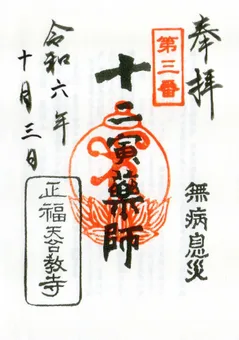 奉拝
第三番
無病息災
十二寅薬師
令和六年
十月三日
正福
天台教寺